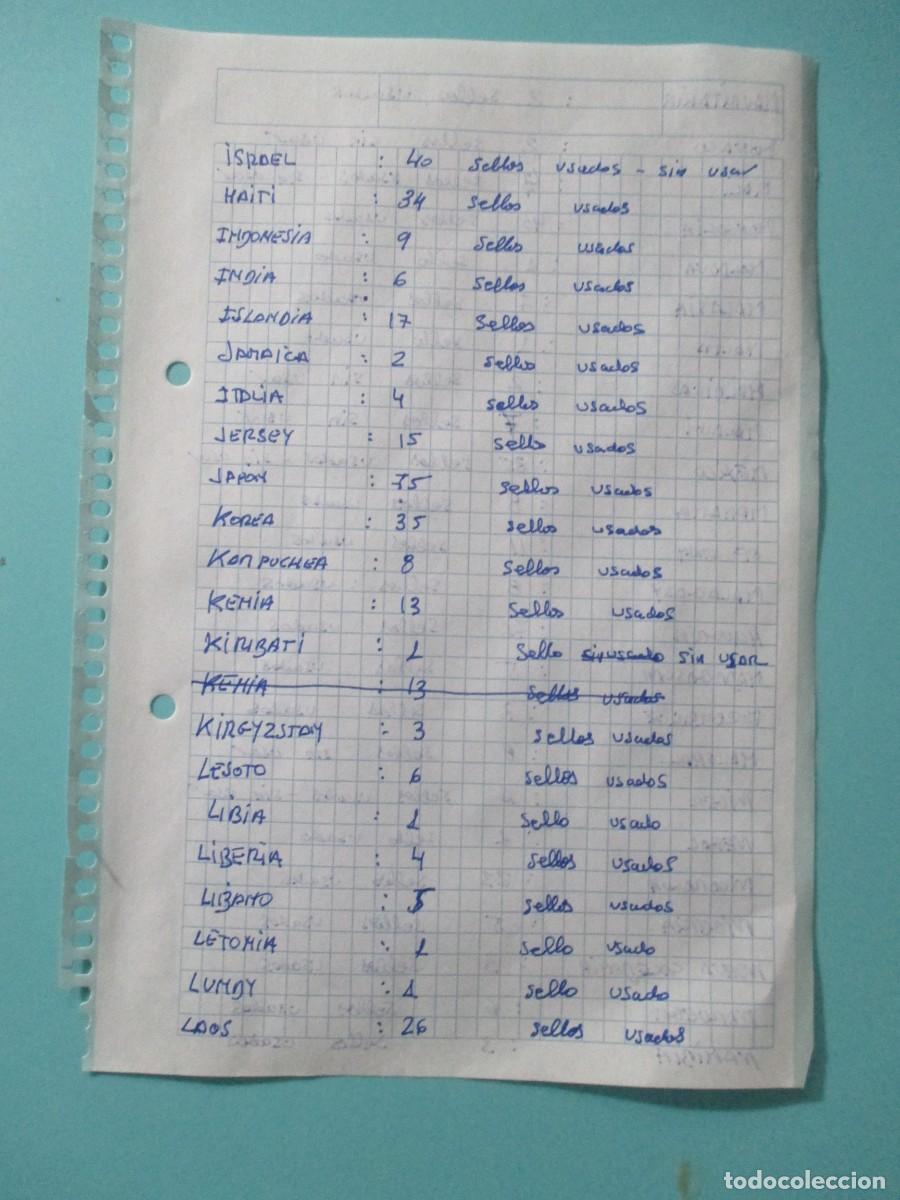 ISRAEL : 40 sellos usados - sin usar
HAITI : 34 sellos usados
INDONESIA : 9 sellos usados
INDIA : 6 sellos usados
ISLANDIA : 17 sellos usados
JAMAICA : 2 sellos usados
ITALIA : 4 sellos usados
JERSEY : 15 sello usados
JAPON : 75 sellos usados
KOREA : 35 sellos usados
KOMPUCHEA : 8 sellos usados
KENIA : 13 sellos usados
KIRIBATI : 1 sello sin usado sin usar
KENIA : 13 sellos usados
KIRGYZSTAN : 3 sellos usados
LESOTO : 6 sellos usados
LIBIA : 1 sello usado
LIBERIA : 4 sellos usados
LIBANO : 5 sellos usados
LETONIA : 1 sello usado
LUNDY : 1 sello usado
LAOS : 26 sellos usados
todocoleccion